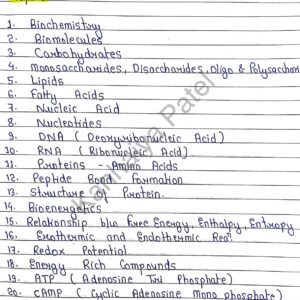 1. Biochemistry
2. Biomolecules
3. Carbohydrates
4. Monosaccharides, Disaccharides, Oligo & Polysacchari
5. Lipids
6. Fatty Acids
7. Nucleic Acid
8. Nucleotides
9. DNA ( Deoxyribonucleic Acid )
10. RNA ( Ribonucleic Acid )
11. Proteins - Amino Acids
12. Peptide Bond formation
13. Structure of Protein
14. Bioenergetics
15. Relationship b/w free Energy, Enthalpy, Entropy
16. Exothermic and Endothermic Reaⁿ
17. Redox Potential
18. Energy Rich Compounds
19. ATP ( Adenosine Tri Phosphate )
20. cAMP ( Cyclic Adenosine mono phosphate )
Patel